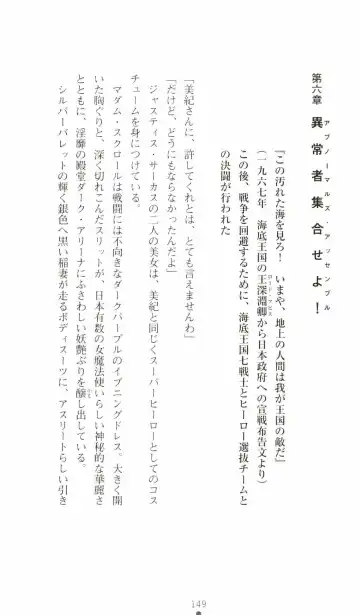 第六章 異常者集合せよ！
アブノーマルズ・アッセンブル
『この汚れた海を見ろ！ いまや、地上の人間は我が王国の敵だ』
（一九六七年 海底王国の王深淵卿から日本政府への宣戦布告文より）
この後、戦争を回避するために、海底王国七戦士とヒーロー選抜チームと
の決闘が行われた
「美紀さんに、許してくれとは、とても言えませんわ」
「だけど、どうにもならなかったんだよ」
ジャスティス・サーカスの二人の美女は、美紀と同じくスーパーヒーローとしてのコス
チュームを身につけている。
マダム・スクロールは戦闘には不向きなダークパープルのイブニングドレス。大きく開
いた胸ぐりと、深く切れこんだスリットが、日本有数の女魔法使いらしい神秘的な華麗さ
とともに、淫靡の殿堂ダーク・アリーナにふさわしい妖艶ぶりを醸し出している。
シルバーバレットの輝く銀色へ黒い稲妻が走るボディスーツに、アスリートらしい引き
149